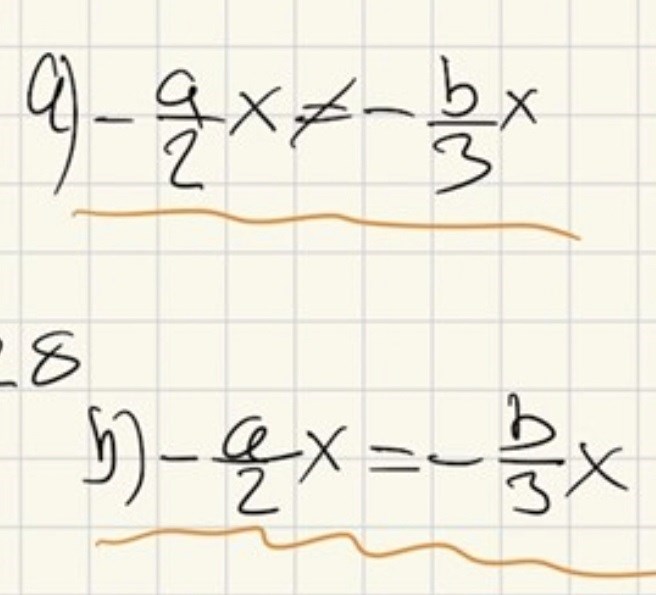 a) - a/2 x ≠ - b/3 x
28
b) - a/2 x = - b/3 x